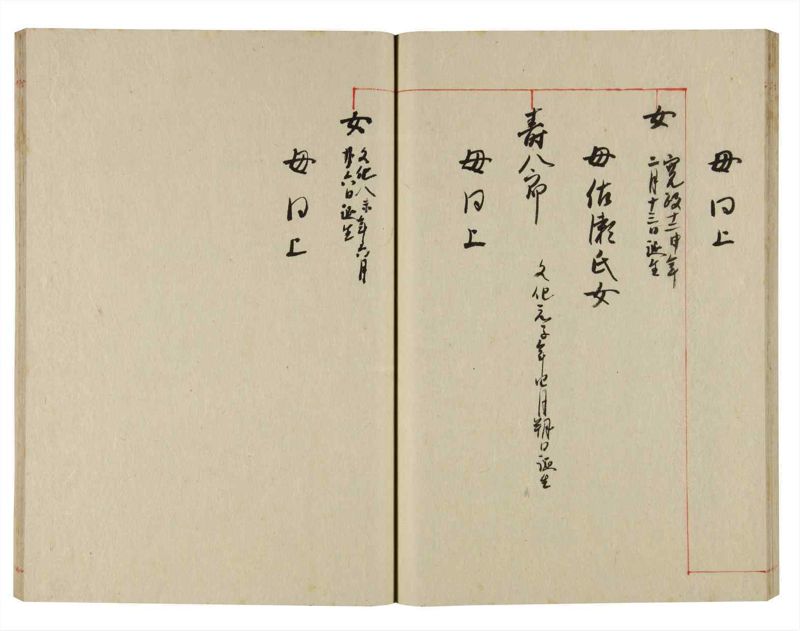 母同上
女
寛政十二申年
二月十三日誕生
母佐瀬氏女
寿八郎
文化元子年四月朔日誕生
母同上
女
文化八未年六月
廿六日誕生
母同上